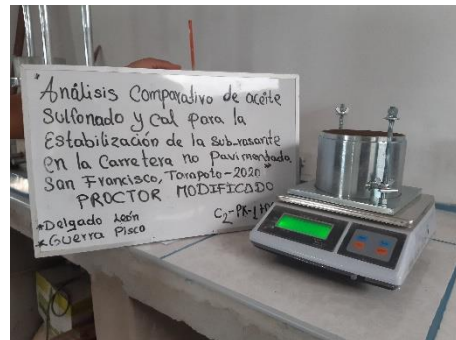 "Análisis Comparativo de aceite
Sulfonado y cal para la
Estabilización de la sub-rasante
en la Carretera no Pavimentada
San Francisco, Tarapoto-2020"
PROCTOR MODIFICADO
*Delgado León
*Guerra Pisco